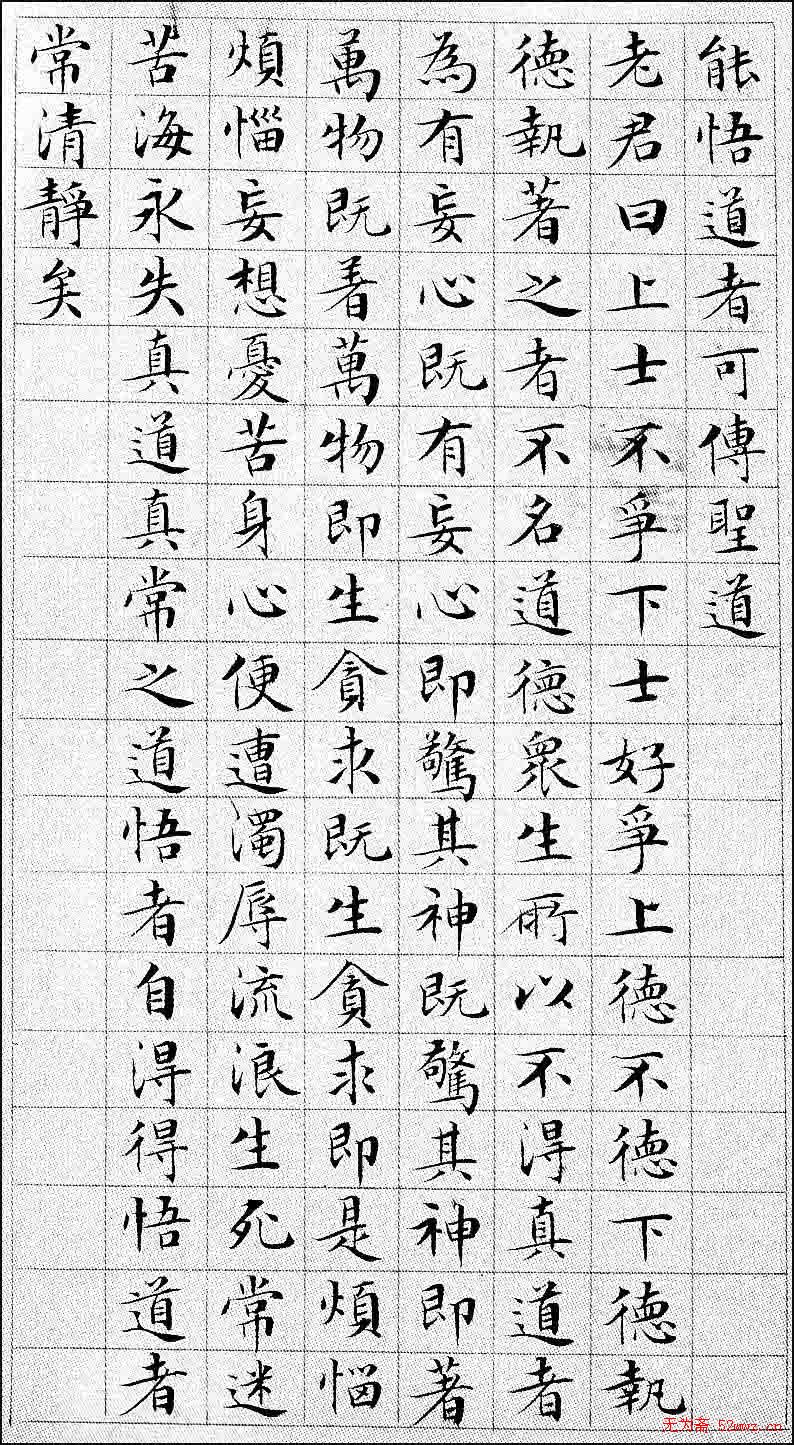 能悟道者可傳聖道
老君曰上士不爭下士好爭上德不德下德執
德執著之者不名道德衆生所以不得真道者
為有妄心既有妄心即驚其神既驚其神即著
萬物既着萬物即生貪求既生貪求即是煩惱
煩惱妄想憂苦身心便遭濁辱流浪生死常迷
苦海永失真道真常之道悟者自得得悟道者
常清靜矣
无为斋.52wwz.cn